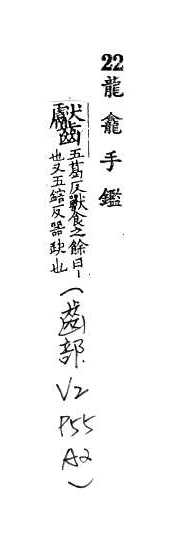 22龍龕手鑑
五葛反獸食之餘曰丨
也又五結反器缺也
(齒部
V2
P55
A2)